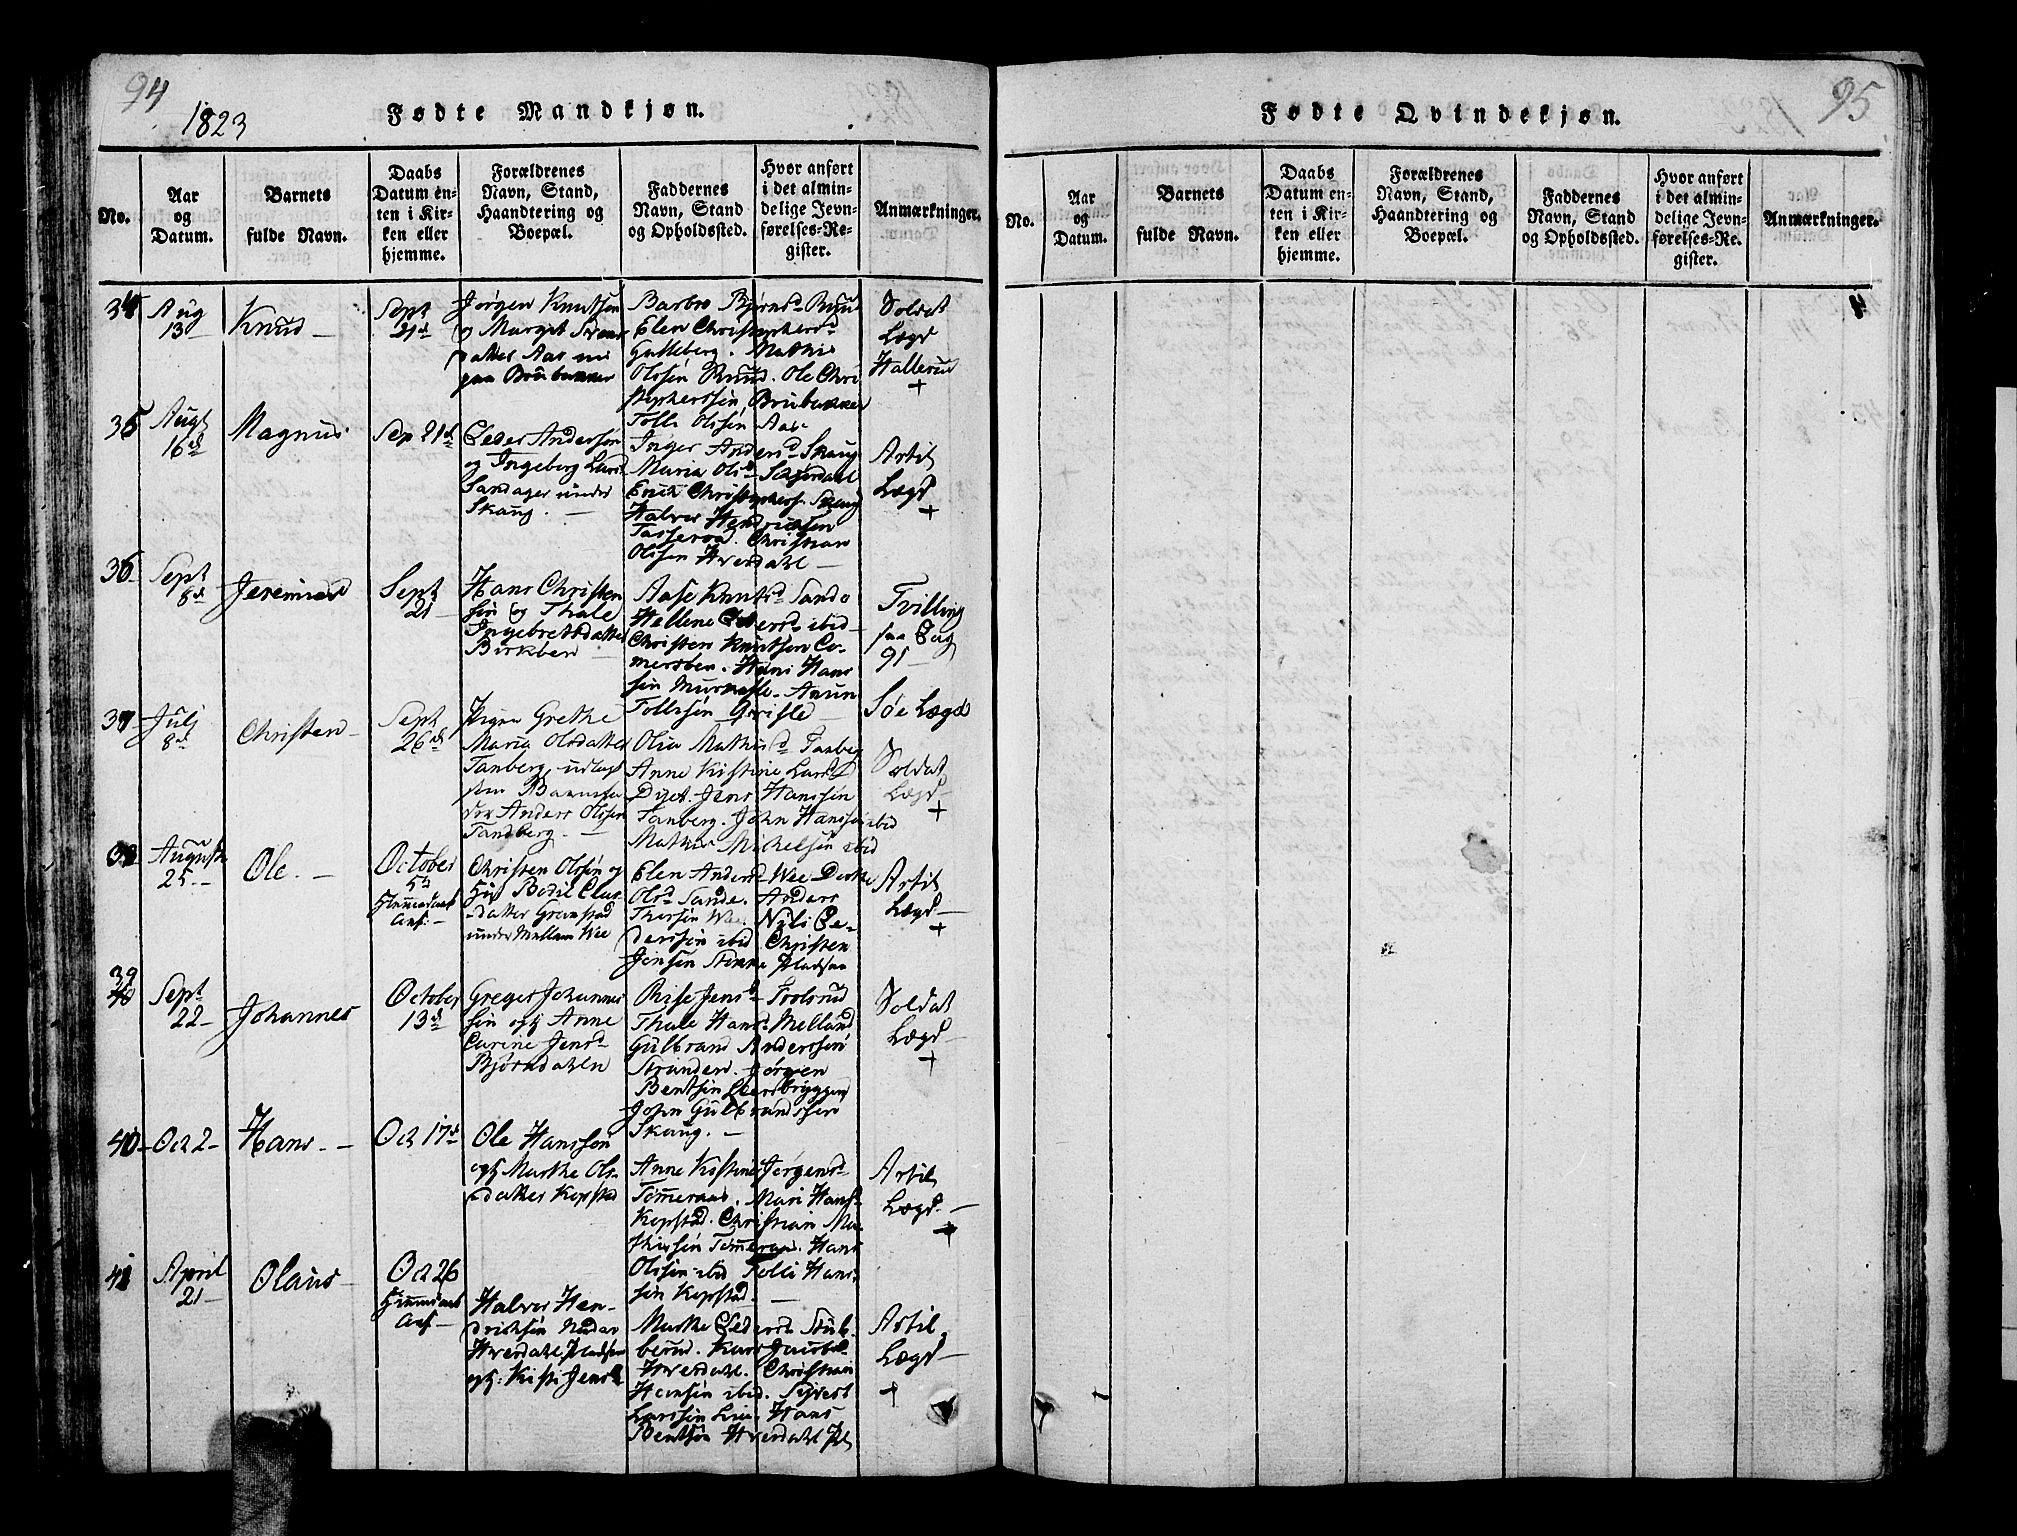 94
1823
Fødte Mandkjøn.
No.
Aar og Datum.
Barnets fulde Navn.
Daabs Datum enten i Kirken eller hjemme.
Forældrenes Navn, Stand, Haandtering og Boepæl.
Faddernes Navn, Stand og Opholdssted.
Hvor anført i det almindelige Jevnførelses-Register.
Anmærkninger.
34
Aug 13
Knud
Sept 21d
Jørgen Knutsøn
og Margit
datter Aas
paa Brubakken
Barbro
Elen Christophersd
Gulleberg. Mathis
Olssøn Ruud. Ole Chri
stopherssøn Brubakken
Tolle Olssøn Aas
Soldat
Lægd
Hallerud
+
35
Augt 16d
Magnus
Sep 21d
Peder Anderssøn
og Ingeborg Larsd
Sandager under
Skaug.
Inger Andersd Skaug
Maria Olsd
Erich Christophers. Skaug
Halvor Hendrichsøn
Christian
Olssøn Hverdahl
Artil
Lægd
+
36
Sept 8d
Jeremias
Sept 21
Hans Christen
søn og Thale
Ingebretsdatter
Birkben
Aase Knutsd Sando
Hellene Pedersd ibid
Christen Knutsøn Co-
mersben. Hans Hans
søn
Tollefsøn Grisle
Tvilling
Pag
91
Søe Lægd
37
Julj 8d
Christen
Sept 26d
Pigen Grethe
Maria Olsdatter
Tanberg, udlagt
Barnefa
der Anders Olssøn
Tandberg.
Olia Mathisd Tanberg
Anne Kistine Larsd
Jens Hanssøn
Tanberg. John Hanssøn ibid
Mathis Michelsøn ibid
Soldat
Lægd
+
38
August 25
Ole.
October 5d
Christen Olssøn og
Bodil
datter Grønstad
under Mellem Wee
Elen Andersd Wee Dorthe
Olsd Sande. Anders
Thorsøn Wee. Nils Pe-
derssøn ibid Christen
Jensøn
Artil
Lægd
+
39
Sept 22
Johannes
October 13d
Greger Johannes
søn og Anne
Carine Jensd
Bjørndahlen
Rise Jensd
Thale Hansd
Gulbrand Anderssøn
Stranden. Jørgen
Bentsøn
John Gulbrandssøn
Skaug.
Soldat
Lægd
+
40
Oct 2
Hans.
Oct 17d
Ole Hanssøn
og Marthe Ols-
datter Kopstad
Anne Kistine Jørgensd
Tømeraas. Mari Hansd
Kopstad. Christian Ma-
thissøn Tømeraas. Hans
Olssøn ibid Tolli Hans-
søn Kopstad.
Artil
Lægd.
+
41
April 21
Olaus
Oct 26
Halvor Hen-
drichsøn
Hverdahl
Kisti Jensd
Marthe Pedersd Stub-
berud.
Hverdahl. Christian
Hansøn ibid. Sivert
Larssøn Lie. Hans
Bentsøn Hverdahl
Artil.
Lægd
+
95
Fødte Qvindekjøn.
No.
Aar og Datum.
Barnets fulde Navn.
Daabs Datum enten i Kirken eller hjemme.
Forældrenes Navn, Stand, Haandtering og Boepæl.
Faddernes Navn, Stand og Opholdssted.
Hvor anført i det almindelige Jevnførelses-Re. gister.
Anmærkninger.